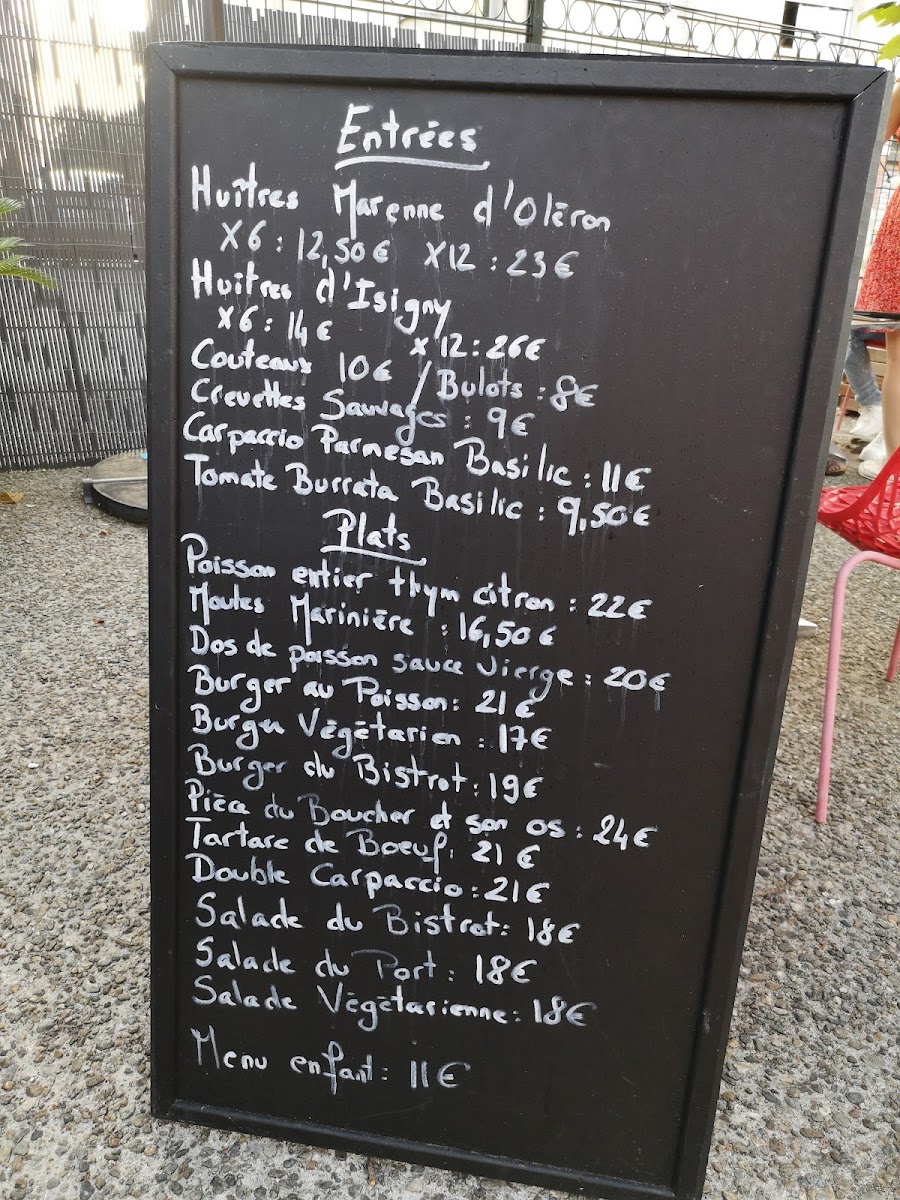 Entrées
Huîtres Marenne d'Olèron
X6 : 12,50€ X12 : 23€
Huîtres d'Isigny
X6 : 14€ X12 : 26€
Couteaux 10€ / Bulots : 8€
Crevettes Sauvages : 9€
Carpaccio Parmesan Basilic : 11€
Tomate Burrata Basilic : 9,50€
Plats
Poisson entier thym citron : 22€
Moules Marinière : 16,50€
Dos de poisson sauce vierge : 20€
Burger au Poisson : 21€
Burger Végétarien : 17€
Burger du Bistrot : 19€
Pièce du Boucher et son os : 24€
Tartare de Boeuf : 21€
Double Carpaccio : 21€
Salade du Bistrot : 18€
Salade du Port : 18€
Salade Végétarienne : 18€
Menu enfant : 11€